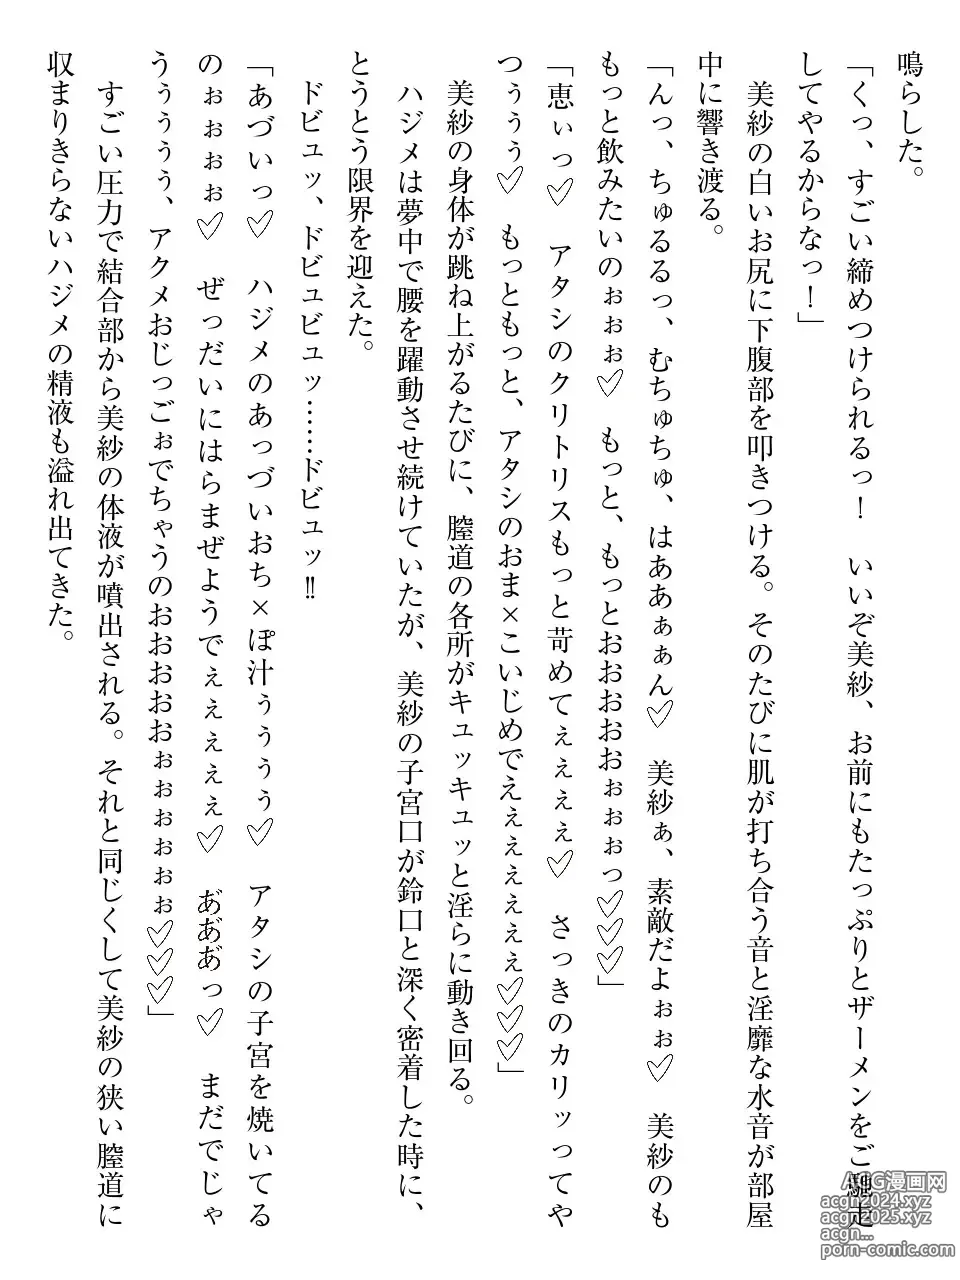 鳴らした。
「くっ、すごい締めつけられるっ！　いいぞ美紗、お前にもたっぷりとザーメンをご馳走
してやるからなっ！」
　美紗の白いお尻に下腹部を叩きつける。そのたびに肌が打ち合う音と淫靡な水音が部屋
中に響き渡る。
「んっ、ちゅるるっ、むちゅちゅ、はああぁぁん♡　美紗ぁ、素敵だよぉぉ♡　美紗のも
もっと飲みたいのぉぉぉ♡　もっと、もっとおおおおおぉぉぉっ♡♡♡」
「恵ぃっ♡　アタシのクリトリスもっと苛めてぇぇぇぇ♡　さっきのカリッってや
つぅぅぅ♡　もっともっと、アタシのおま×こいじめでえぇぇぇぇぇぇ♡♡♡」
　美紗の身体が跳ね上がるたびに、膣道の各所がキュッキュッと淫らに動き回る。
　ハジメは夢中で腰を躍動させ続けていたが、美紗の子宮口が鈴口と深く密着した時に、
とうとう限界を迎えた。
　ドビュッ、ドビュビュッ……ドビュッ‼
「あづいっ♡　ハジメのあっづいおち×ぽ汁ぅぅぅぅ♡　アタシの子宮を焼いてる
のぉぉぉぉ♡　ぜっだいにはらまぜようでぇぇぇぇぇ♡　あ゙あ゙あ゙っ♡　まだでじゃ
うぅぅぅぅ、アクメおじっごぉでちゃうのおおおおおおぉぉぉぉぉぉ♡♡♡」
　すごい圧力で結合部から美紗の体液が噴出される。それと同じくして美紗の狭い膣道に
収まりきらないハジメの精液も溢れ出てきた。
ACG漫画网
acgn2024.xyz
acgn2025.xyz
acgn...
porn-comic.com